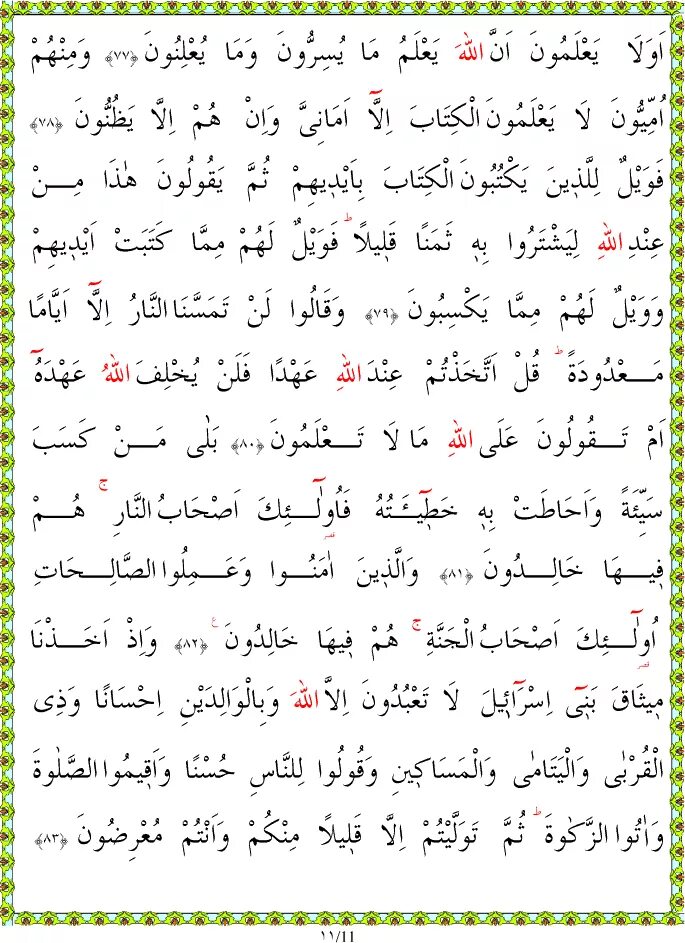 اَوَلَا يَعْلَمُونَ اَنَّ اللّٰهَ يَعْلَمُ مَا يُسِرُّونَ وَمَا يُعْلِنُونَ ﴿٧٧﴾ وَمِنْهُمْ
اُمِّيُّونَ لَا يَعْلَمُونَ الْكِتَابَ اِلَّٓا اَمَانِىَّ وَاِنْ هُمْ اِلَّا يَظُنُّونَ ﴿٧٨﴾
فَوَيْلٌ لِلَّذِينَ يَكْتُبُونَ الْكِتَابَ بِاَيْدِيهِمْ ثُمَّ يَقُولُونَ هٰذَا مِنْ
عِنْدِ اللّٰهِ لِيَشْتَرُوا بِهٖ ثَمَنًا قَلٖيلًاؕ فَوَيْلٌ لَهُمْ مِمَّا كَتَبَتْ اَيْدٖيهِمْ
وَوَيْلٌ لَهُمْ مِمَّا يَكْسِبُونَ ﴿٧٩﴾ وَقَالُوا لَنْ تَمَسَّنَا النَّارُ اِلَّٓا اَيَّامًا
مَعْدُودَةًؕ قُلْ اَتَّخَذْتُمْ عِنْدَ اللّٰهِ عَهْدًا فَلَنْ يُخْلِفَ اللّٰهُ عَهْدَهُٓ
اَمْ تَقُولُونَ عَلَى اللّٰهِ مَا لَا تَعْلَمُونَ ﴿٨٠﴾ بَلٰى مَنْ كَسَبَ
سَيِّئَةً وَاَحَاطَتْ بِهٖ خَطٖٓيـَٔتُهُ فَاُولٰٓئِكَ اَصْحَابُ النَّارِۚ هُمْ
فٖيهَا خَالِدُونَ ﴿٨١﴾ وَالَّذٖينَ اٰمَنُوا وَعَمِلُوا الصَّالِحَاتِ
اُولٰٓئِكَ اَصْحَابُ الْجَنَّةِۚ هُمْ فٖيهَا خَالِدُونَ ﴿٨٢﴾ ع وَاِذْ اَخَذْنَا
مٖيثَاقَ بَنٖٓى اِسْرَٓائٖلَ لَا تَعْبُدُونَ اِلَّا اللّٰهَ وَبِالْوَالِدَيْنِ اِحْسَانًا وَذِى
الْقُرْبٰى وَالْيَتَامٰى وَالْمَسَاكٖينِ وَقُولُوا لِلنَّاسِ حُسْنًا وَاَقٖيمُوا الصَّلٰوةَ
وَاٰتُوا الزَّكٰوةَؕ ثُمَّ تَوَلَّيْتُمْ اِلَّا قَلٖيلًا مِنْكُمْ وَاَنْتُمْ مُعْرِضُونَ ﴿٨٣﴾
١١/11